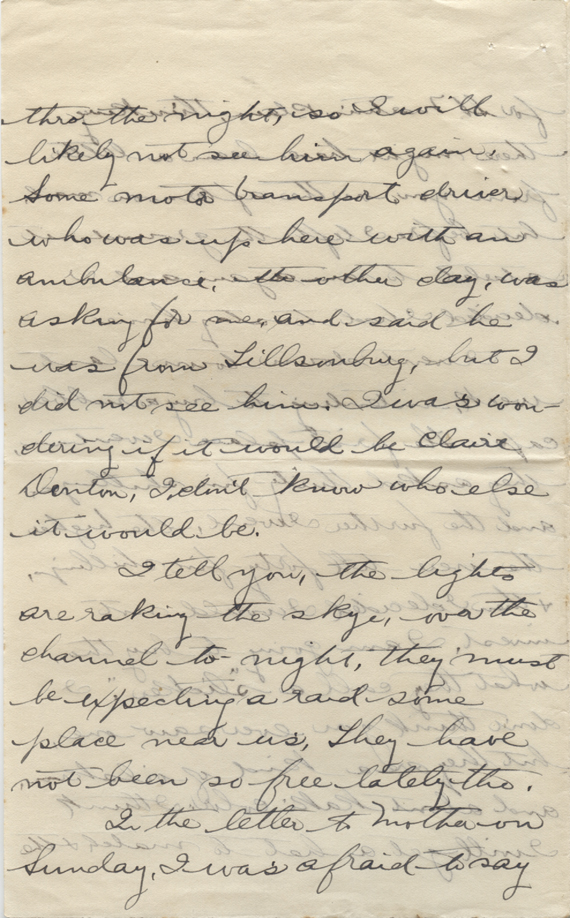 thro the night, so I will
likely not see him again.
Some motor transport driver,
who was up here with an
ambulance, the other day, was
asking for me, and said he
was from Tillsonburg, but I
did not see him. I was won-
dering if it would be Claire
Denton, I don't know who else
it would be.
I tell you, the lights
are raking the skye, over the
channel to-night, they must
be expecting a raid some
place near us, They have
not been so free lately tho.
In the letter to Mother on
Sunday, I was afraid to say